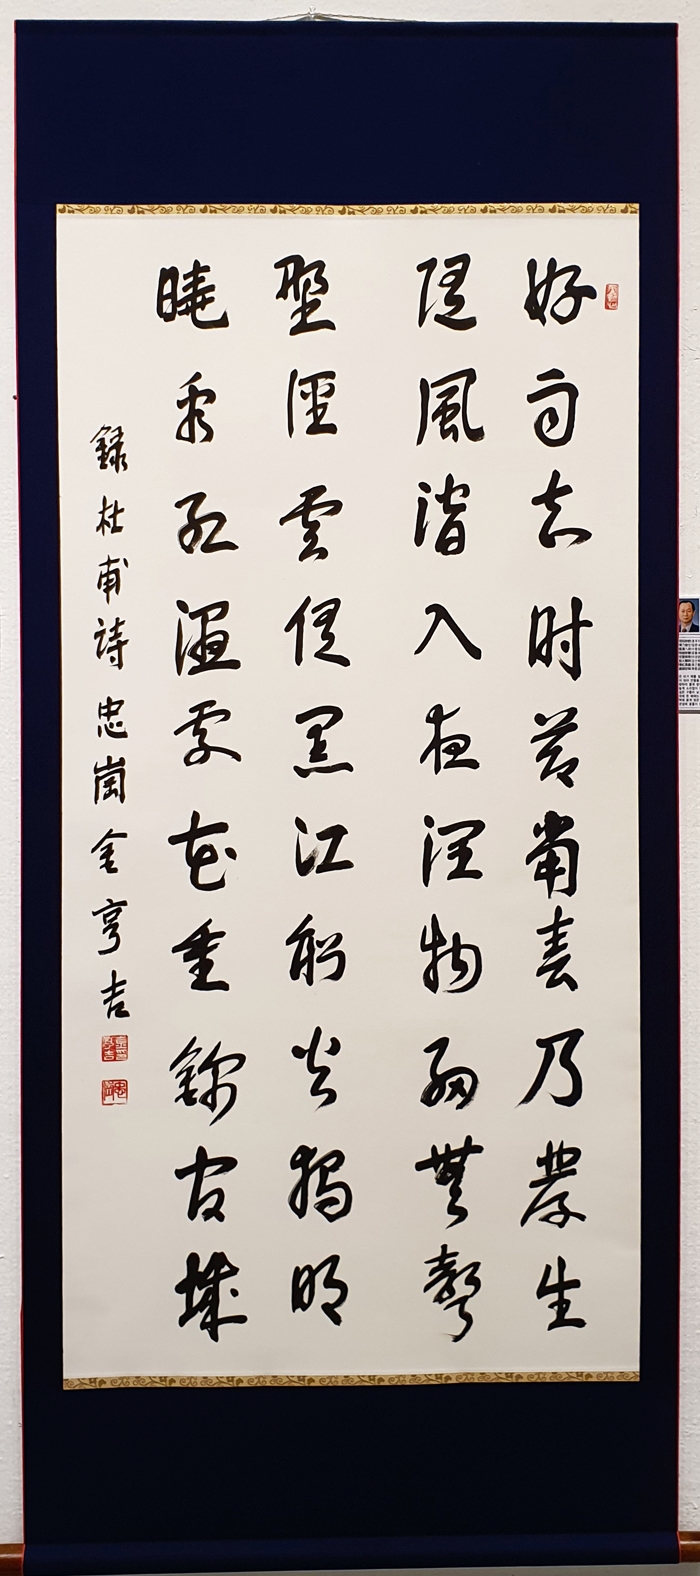 好雨知时節當春乃發生
隨風潛入夜潤物細無聲
野徑雲俱黑江船火獨明
曉看紅濕處花重錦官城
錄杜甫詩 忠崗 金亨吉